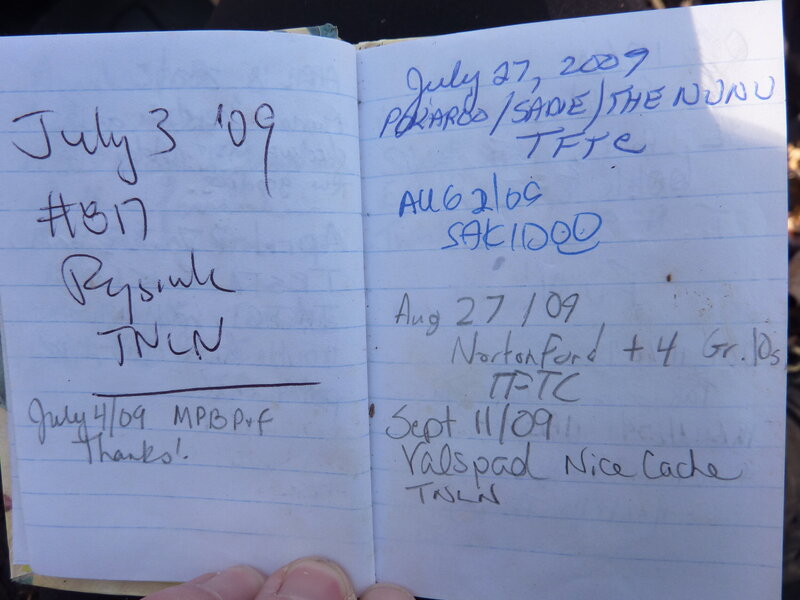 July 3 '09
#817
Rysink
TNLN
July 4/09 MPBPvF
Thanks!
July 27, 2009
POKAROO/SADIE/THE NUNU
TFTC
AUG 2/09
SAKIDOO
Aug 27/09
NortonFord + 4 Gr.10s
TFTC
Sept 11/09
Valspad Nice Cache
TNLN